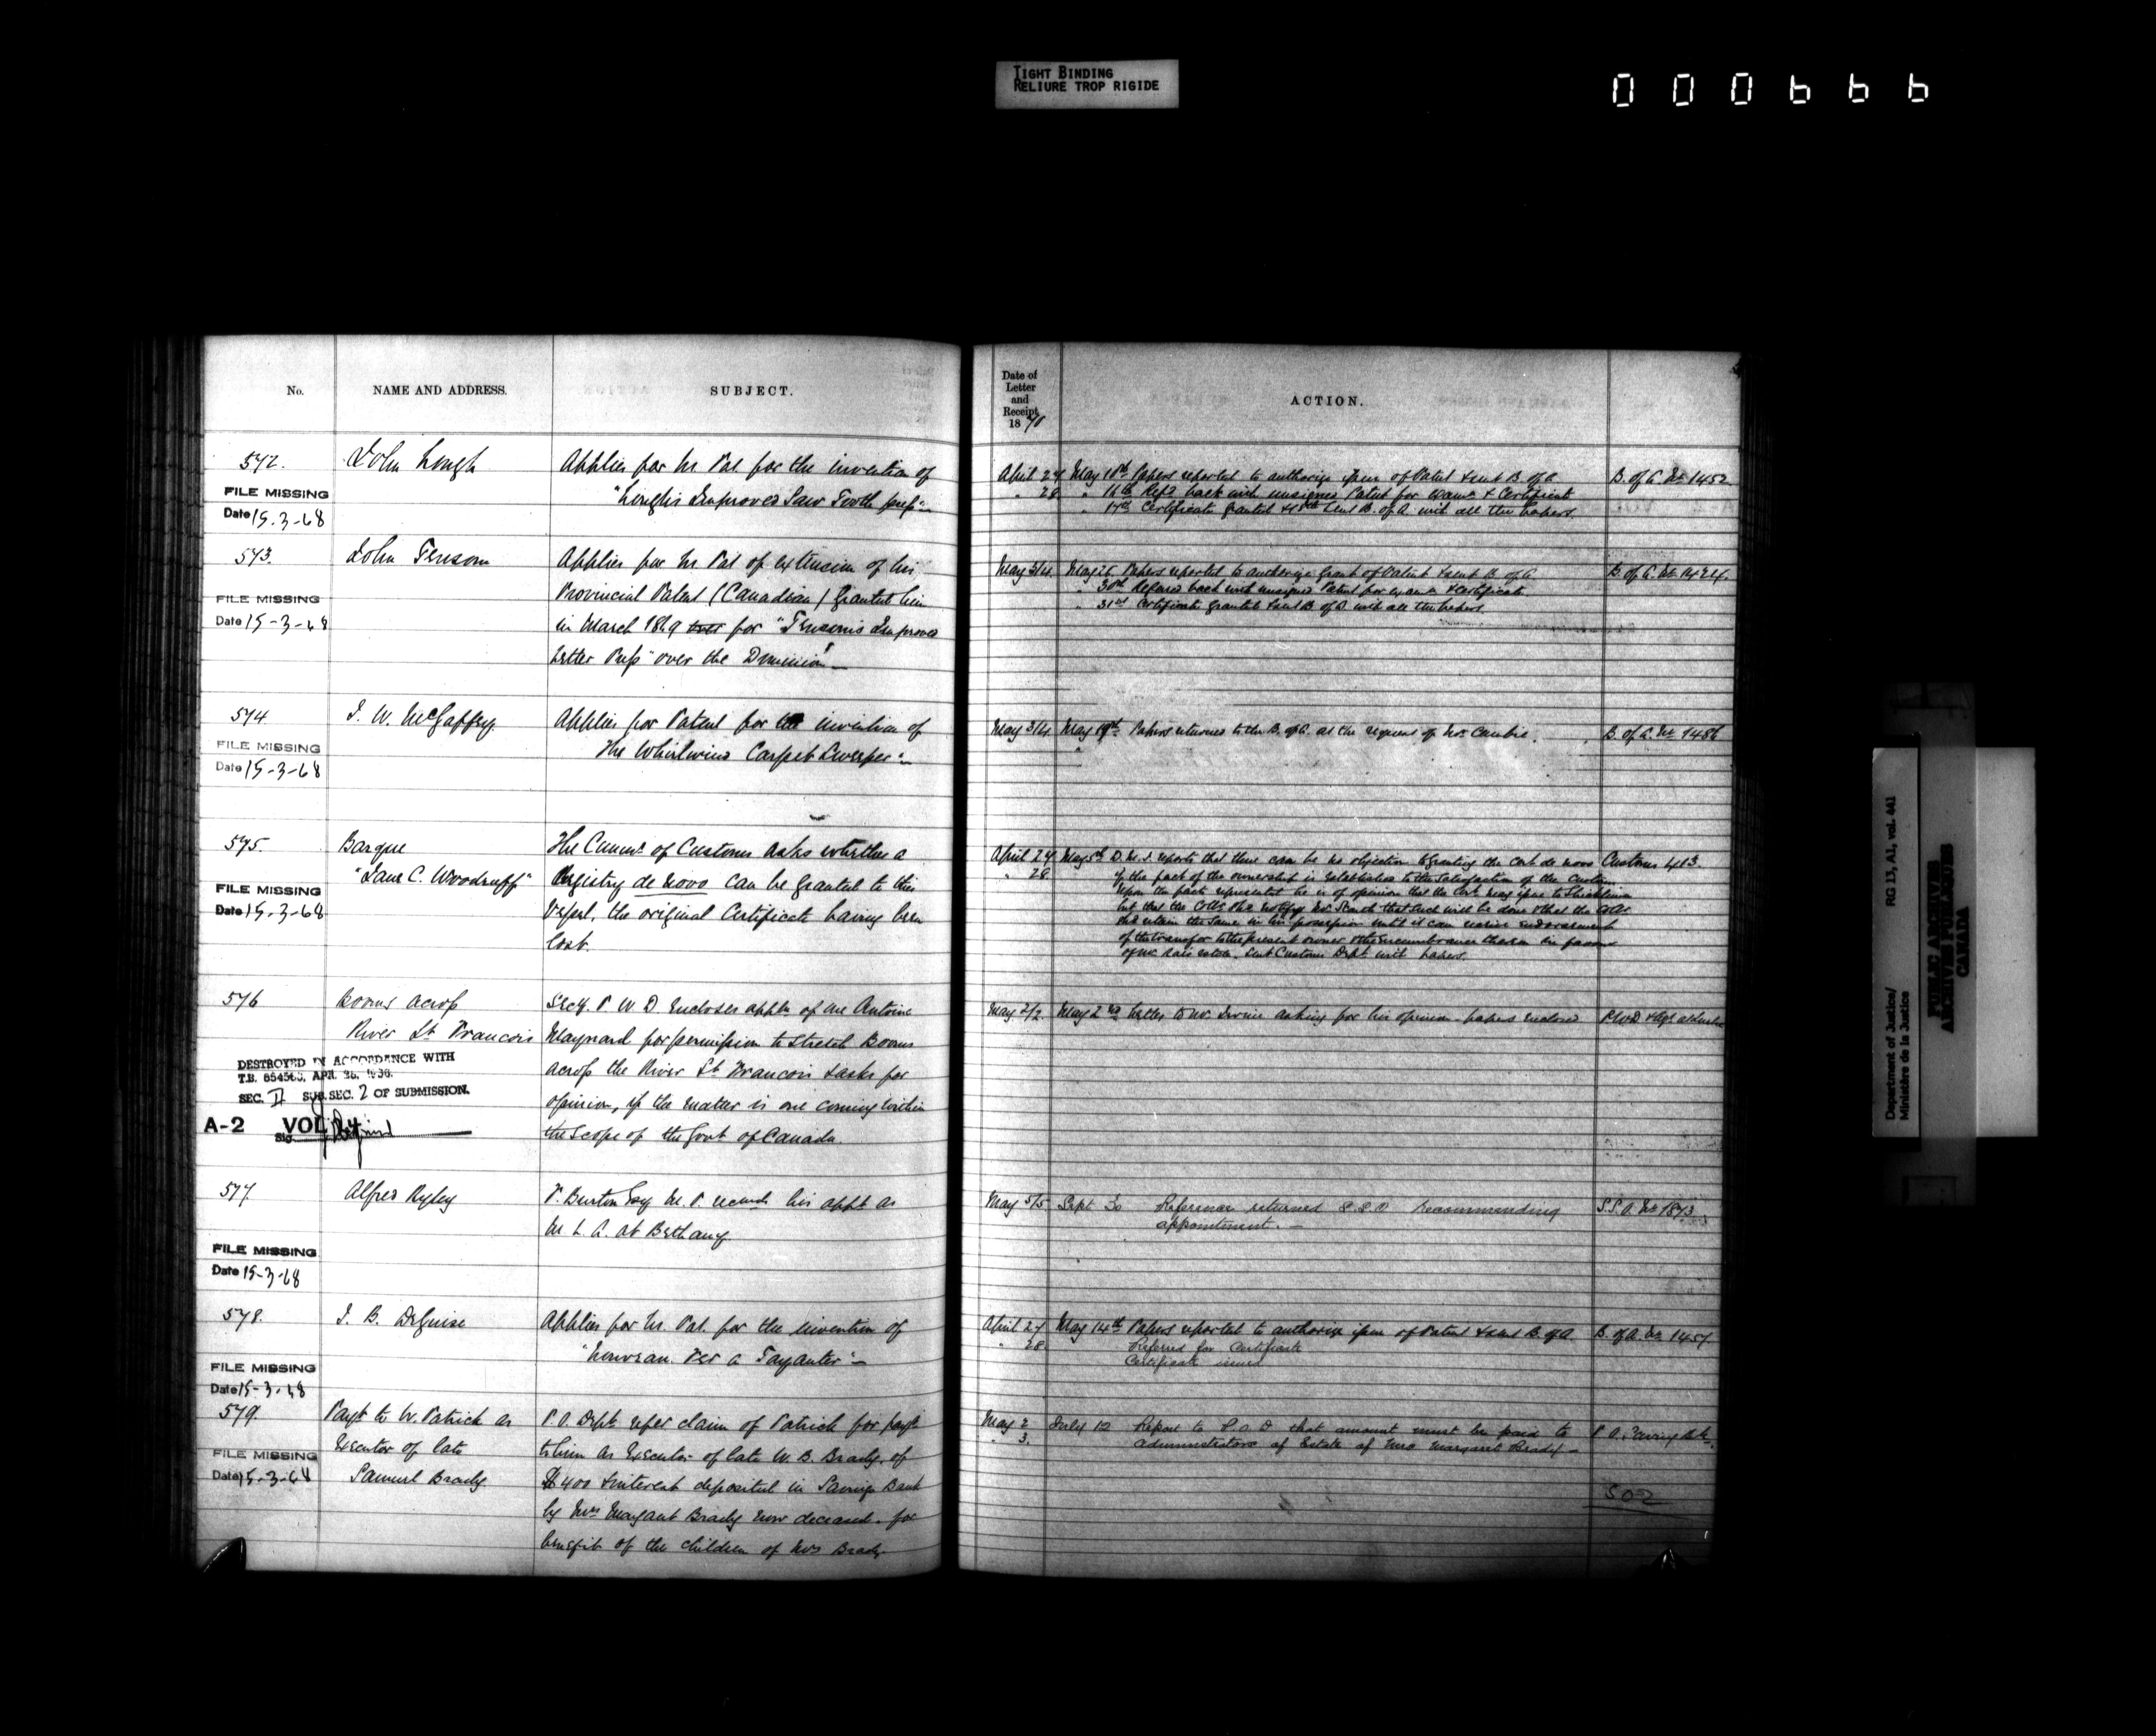 TIGHT BINDING
RELIURE TROP RIGIDE
000666
No.
NAME AND ADDRESS.
SUBJECT.
572.
John Lough
Applies for Lrs Pat for the invention of
"Lough's Improved Saw Tooth press"
FILE MISSING
Date 15-3-68
573.
John Ferusom
Applies for Lrs Pat of extension of his
Provincial Patent (Canadian) granted him
in March 1869 for "Improved
Letter Press" over the Dominion
FILE MISSING
Date 15-3-68
574
J. W. McGaffey
Applies for Patent for the invention of
The Whirlwind Carpet Sweeper"
FILE MISSING
Date 15-3-68
575.
Barque
"Jane C. Woodruff"
The Commr of Customs asks whether a
Registry de novo can be granted to this
Vessel, the original Certificate having been
lost.
FILE MISSING
Date 15-3-68
576
Booms across
River St Francois
Secy P W D Encloses appln of one Antoine
Maynard for permission to stretch Booms
across the River St Francois & asks for
opinion, if the matter is one coming within
the scope of the Govt of Canada.
DESTROYED IN ACCORDANCE WITH
T.B. 654563, APR. 26, 1938.
SEC. II SUB. SEC. 2 OF SUBMISSION.
A-2 VOL
Sig.
577
Alfred Ryley
F. Burton Esq M. P. recmds his appt as
M L. A. at Bethany.
FILE MISSING
Date 15-3-68
578.
J. B. Deguise
Applies for Lrs. Pat. for the invention of
"Nouveau a Tayauter"
FILE MISSING
Date 15-3-68
579.
Payt to W. Patrick as
Executor of late
Samuel Brady
P. O. Dept refer claim of Patrick for payt
to him as Executor of late W. B. Brady. of
$400 & interest deposited in Savings Bank
by Mrs Margaret Brady now deceased. for
benefit of the children of Mrs Brady.
FILE MISSING
Date 15-3-68
Date of
Letter
and
Receipt
1870
ACTION.
April 27 May 10th Papers reported to authorize issue of Patent & sent B. of A B. of A. No 1452
" 28 " 16th Refd back with unsigned Patent for exam & Certificate
" 17th Certificate granted & sent B. of A. with all the papers.
May 3/4 May 25 Papers reported to authorize Grant of Patent & sent B. of A. B. of A. No
" 30th Referred back with unsigned Patent for exam & Certificate
" 31st Certificate granted & sent B of A with all the papers
May 3/4 May 19th Papers returned to the B. of A. at the request of Mr. Cambie. B. of A. No 1486
April 27 May 5th D. M. J. reports that there can be no objection to granting the Cert de novo Customs 413.
" 28 if the fact of the ownership is established to the satisfaction of the Customs
Upon the facts represented he is of opinion that the Cert may issue to
but that the Collr shd notify Mr that such will be done & that the Collr
shd retain the same in his possession until it can receive endorsement
of the transfer to the present owner & the encumbrance thereon in favor
of Sent Customs Dept with papers.
May 2/2 May 2nd Letter to Mr. Irvine asking for his opinion papers enclosed P.W.D
May 5/5 Sept 30 Reference returned S.S.O Recommending S. S. O. No 1873
appointment.
April 27 May 14th Papers reported to authorize issue of Patent & sent B. of A B. of A. No 1457.
" 28. Referred for Certificate
Certificate issued
May 2 July 12 Report to P. O. D that amount must be paid to P. O. Saving Bk.
" 3. Administrators of Estate of Mrs Margaret Brady
502
Department of Justice/ RG 13, A1, vol. 441
Ministère de la Justice
PUBLIC ARCHIVES
ARCHIVES PUBLIQUES
CANADA